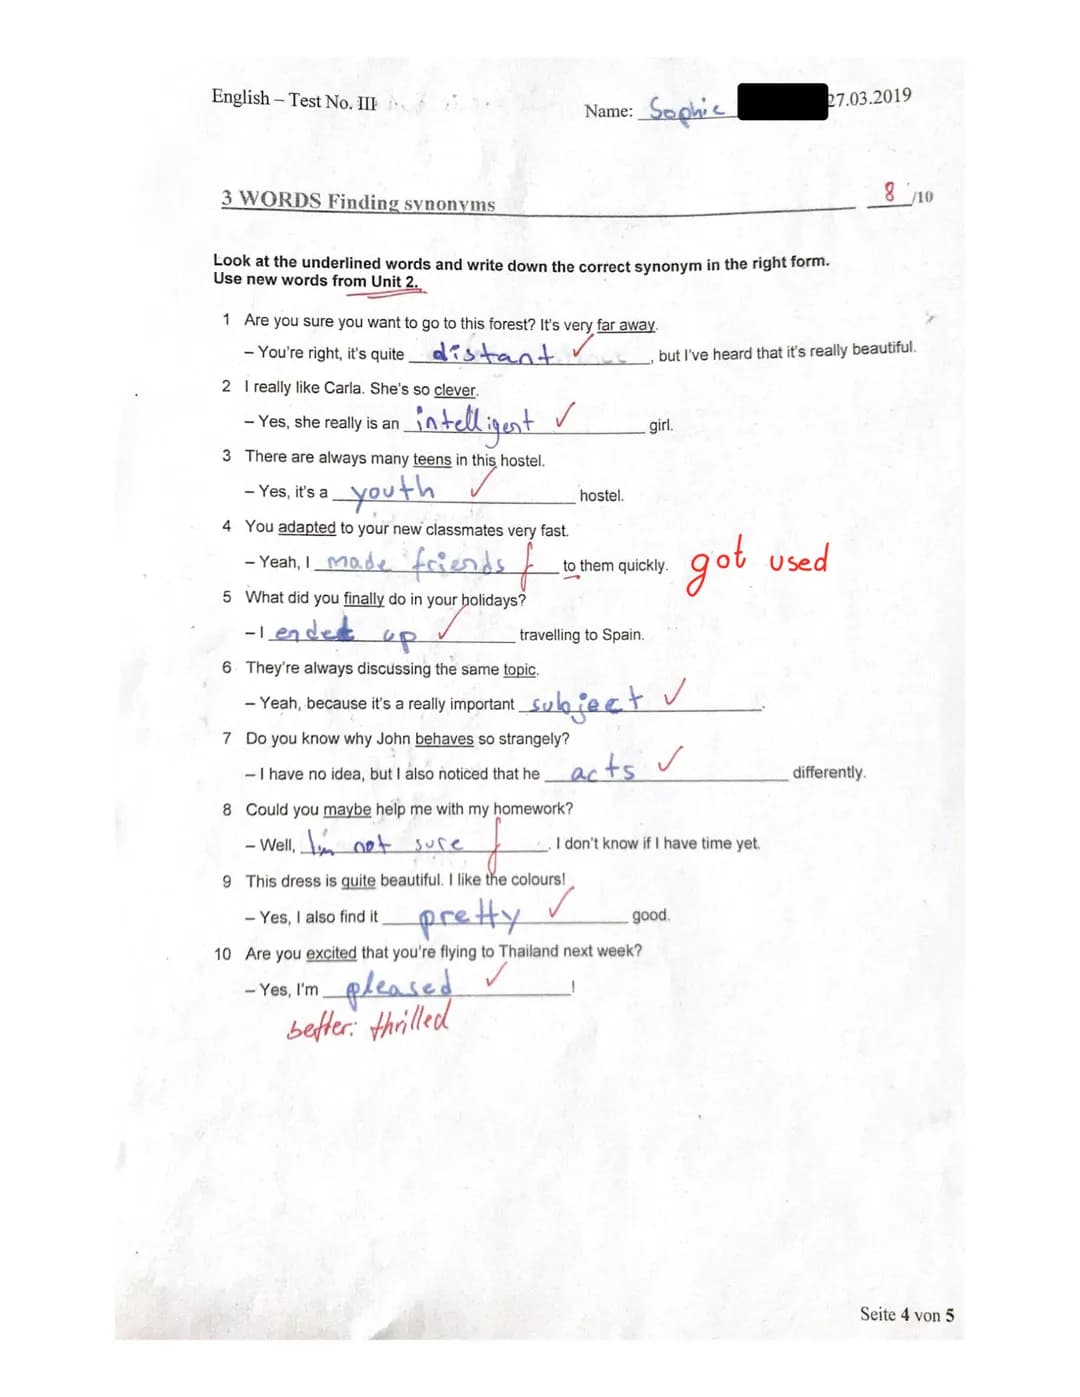 English – Test No. III
Name: Sophie 27.03.2019
3 WORDS Finding synonyms 8 /10
Look at the underlined words and write down the correct synonym in the right form.
Use new words from Unit 2.
1 Are you sure you want to go to this forest? It's very far away.
– You're right, it's quite distant ✓, but I've heard that it's really beautiful.
2 I really like Carla. She's so clever.
– Yes, she really is an intelligent ✓ girl.
3 There are always many teens in this hostel.
– Yes, it's a youth ✓ hostel.
4 You adapted to your new classmates very fast.
– Yeah, I made friends f to them quickly. got used
5 What did you finally do in your holidays?
– I ended up ✓ travelling to Spain.
6 They're always discussing the same topic.
– Yeah, because it's a really important subject ✓.
7 Do you know why John behaves so strangely?
– I have no idea, but I also noticed that he acts ✓ differently.
8 Could you maybe help me with my homework?
– Well, I'm not sure f. I don't know if I have time yet.
9 This dress is quite beautiful. I like the colours!
– Yes, I also find it pretty ✓ good.
10 Are you excited that you're flying to Thailand next week?
– Yes, I'm pleased ✓!
better: thrilled
Seite 4 von 5